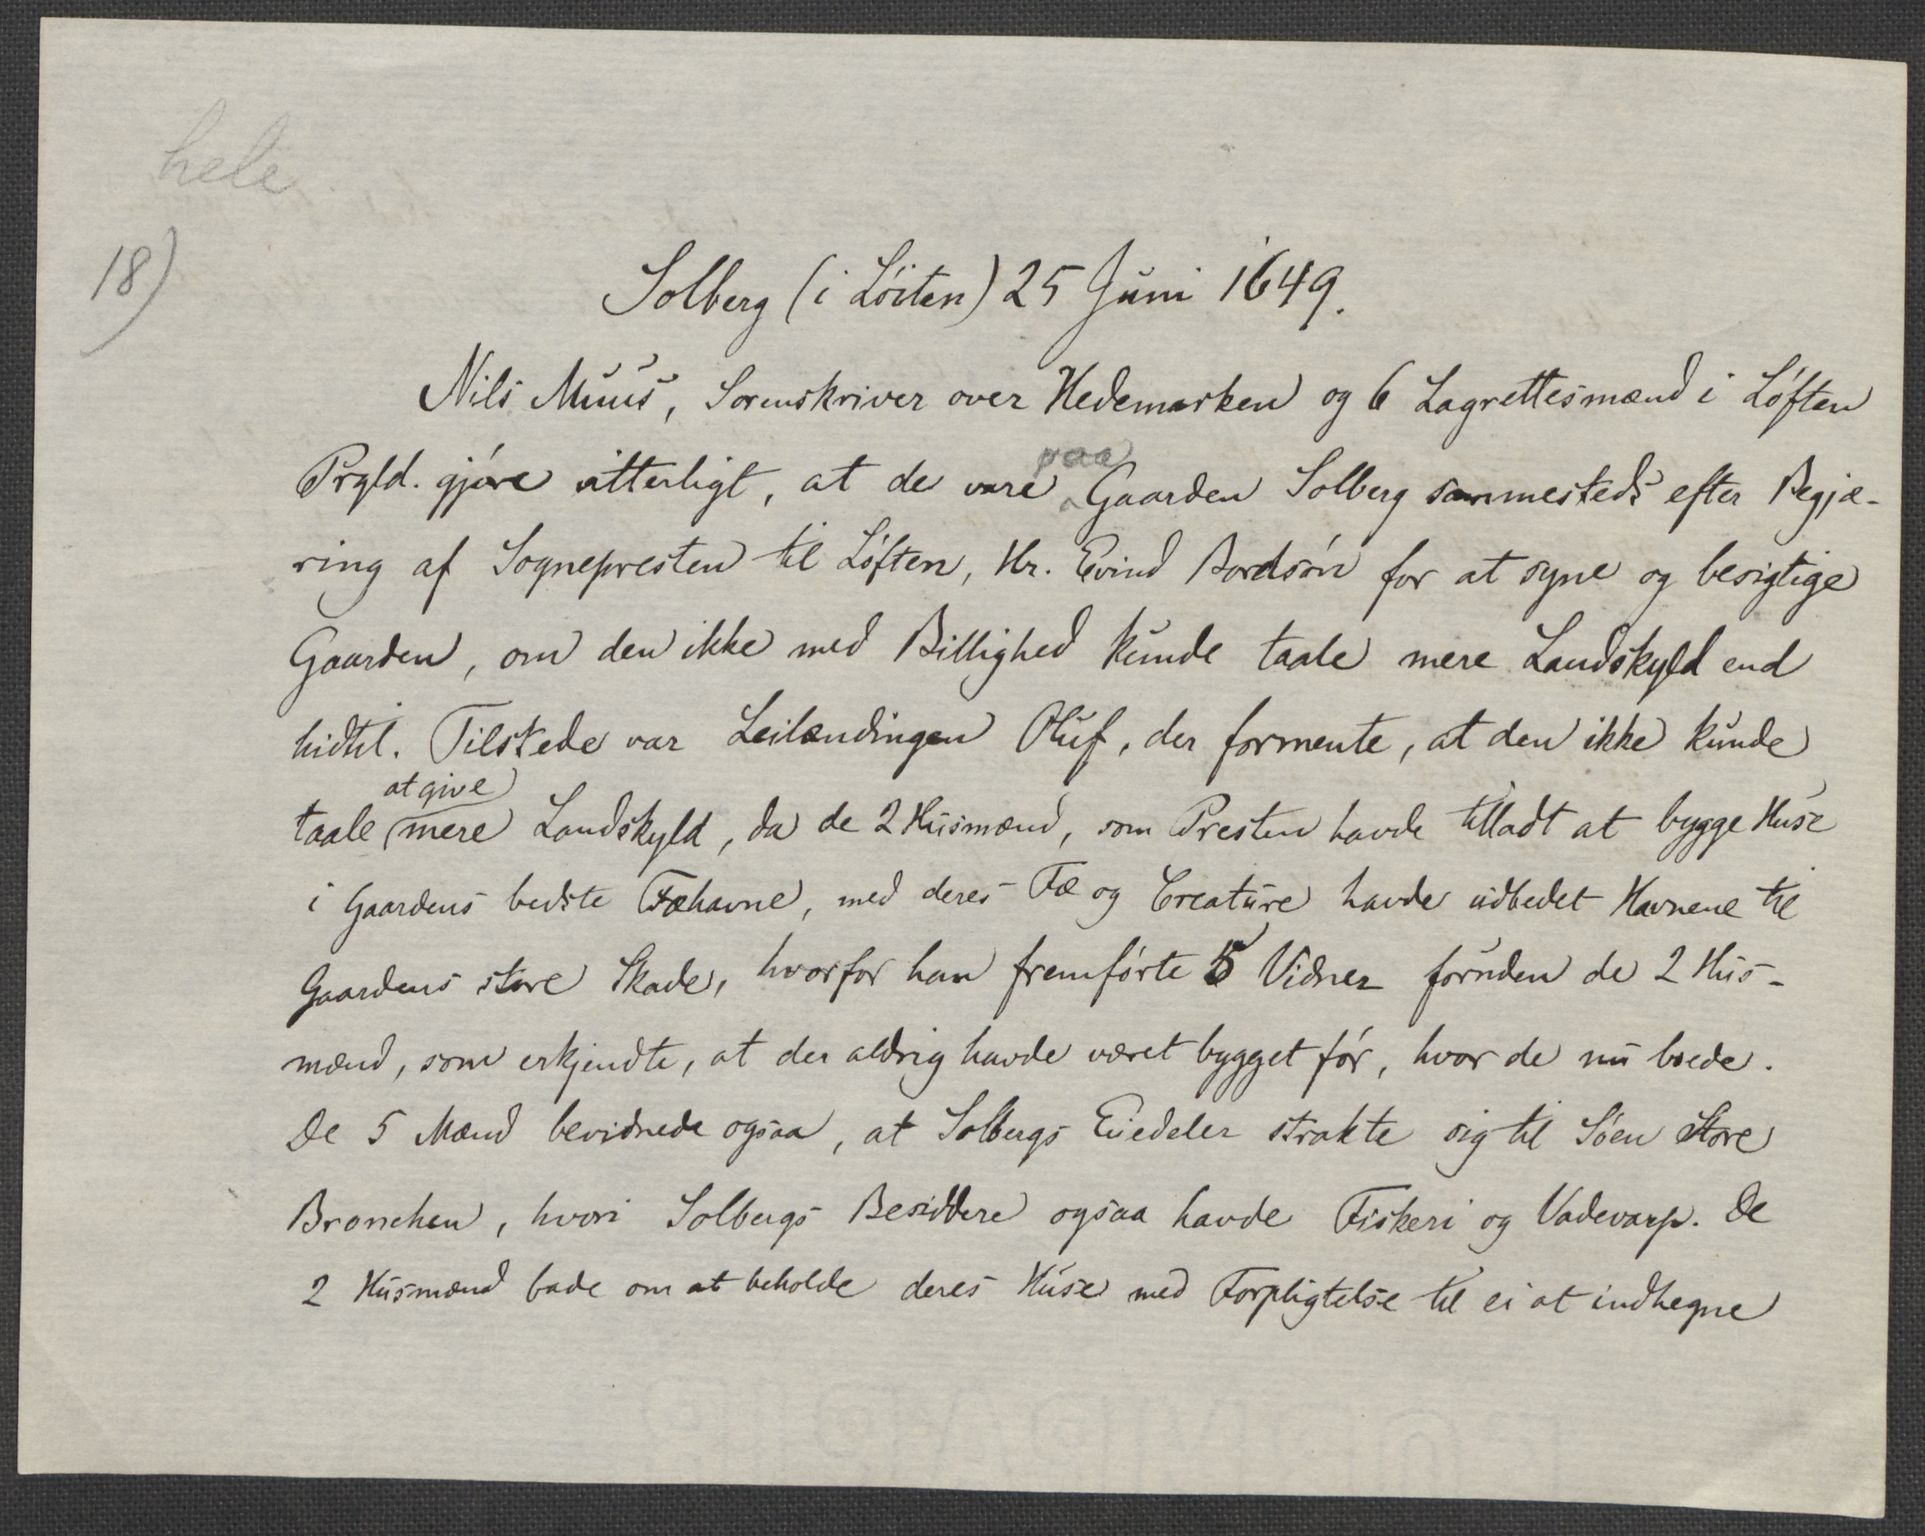 hele
18)
Solberg (i Löiten) 25 Juni 1649.
Nils Muus, Sorenskriver over Hedemarken og 6 Lagrettesmænd i Løften
Prgld. gjøre vitterligt, at de vare paa Gaarden Solberg sammesteds efter Begjæ-
ring af Sognepresten til Løften, Hr. Evind Bordsøn for at syne og besigtige
Gaarden, om den ikke med Billighed kunde taale mere Landskyld end
hidtil. Tilstede var Leilændingen Oluf, der formente, at den ikke kunde
taale at give mere Landskyld, da de 2 Husmænd, som Presten havde tilladt at bygge Huse
i Gaardens bedste Fæhavne, med deres Fæ og Creature havde udbedet Havnene til
Gaardens store Skade, hvorfor han fremførte 5 Vidner foruden de 2 Hus-
mænd, som erkjendte, at der aldrig havde været bygget før, hvor de nu boede.
De 5 Mænd bevidnede ogsaa, at Solbergs Eiedeler strakte sig til Søen Store
Bronchen, hvori Solbergs Besiddere ogsaa havde Fiskeri og Vadevarp. De
2 Husmænd bade om at beholde deres Huse med Forpligtelse til ei at indhegne